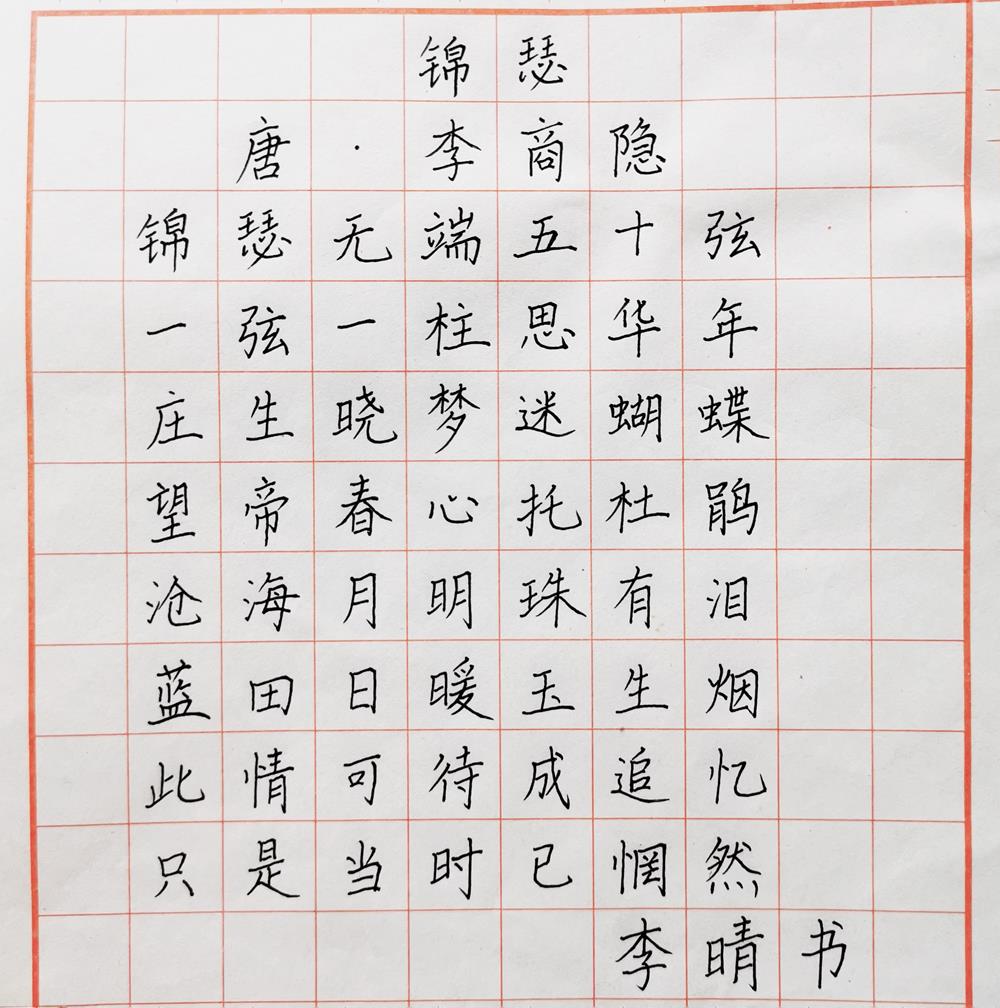 锦瑟
唐·李商隐
锦瑟无端五十弦
一弦一柱思华年
庄生晓梦迷蝴蝶
望帝春心托杜鹃
沧海月明珠有泪
蓝田日暖玉生烟
此情可待成追忆
只是当时已惘然
李晴书